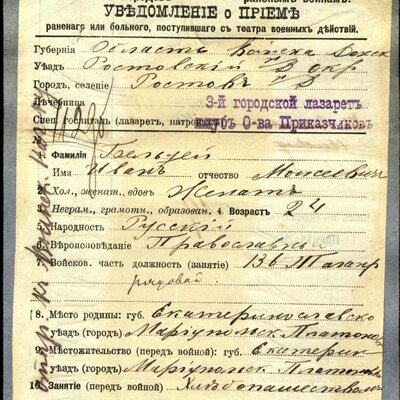 раненымъ воинамъ.
УВѢДОМЛЕНІЕ о ПРІЕМѢ
раненаго или больного, поступившаго съ театра военныхъ дѣйствій.
Губернія Область Войска Донск
Уѣздъ Ростовскій н/Д окр
Городъ, селеніе Ростовъ н/Д
Лѣчебница 3-й городской лазаретъ
Спец. госпиталь (лазаретъ, патронатъ) О-ва Приказчиковъ
№
Фамилія
Имя Иванъ отчество Моисеевичъ
2. Хол., женат., вдовъ Женатъ
3. Неграм., грамотн., образован. 4. Возрастъ 24
5. Народность Русскій
6. Вѣроисповѣданіе Православный
7. Войсков. часть должность (занятіе) 136 Таганр
рядовой
8. Мѣсто родины: губ. Екатеринославско
уѣздъ (городъ) Маріупольск
9. Мѣстожительство (передъ войной): губ. Екатерин
уѣздъ (городъ) Маріупольск
10. Занятіе (передъ войной) Хлѣбопашествомъ